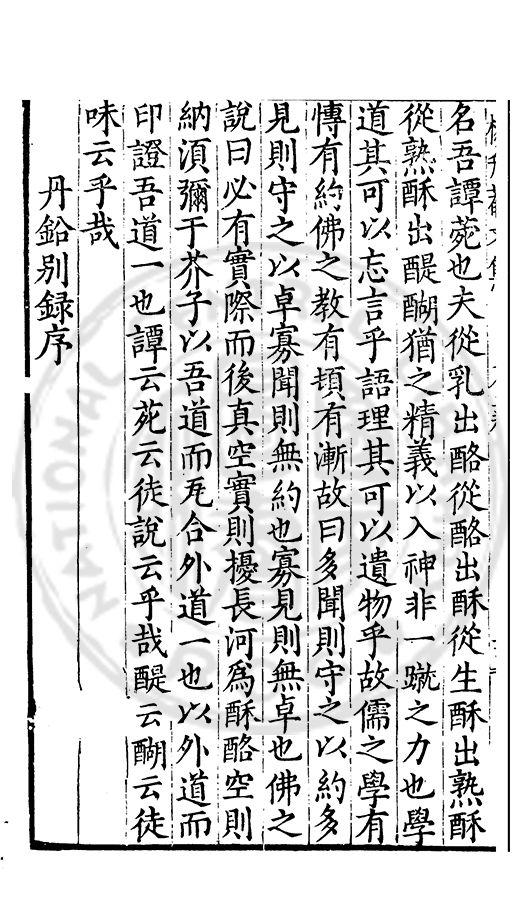 名吾譚菀也夫從乳出酪從酪出酥從生酥出熟酥
從熟酥出醍醐猶之精義以入神非一蹴之力也學
道其可以忘言乎語理其可以遺物乎故儒之學有
慱有約佛之教有頓有漸故曰多聞則守之以約多
見則守之以卓寡聞則無約也寡見則無卓也佛之
說曰必有實際而後真空實則擾長河為酥酪空則
納湏彌于芥子以吾道而瓦合外道一也以外道而
印證吾道一也譚云菀云徒說云乎哉醍云醐云徒
味云乎哉
丹鉛别録序